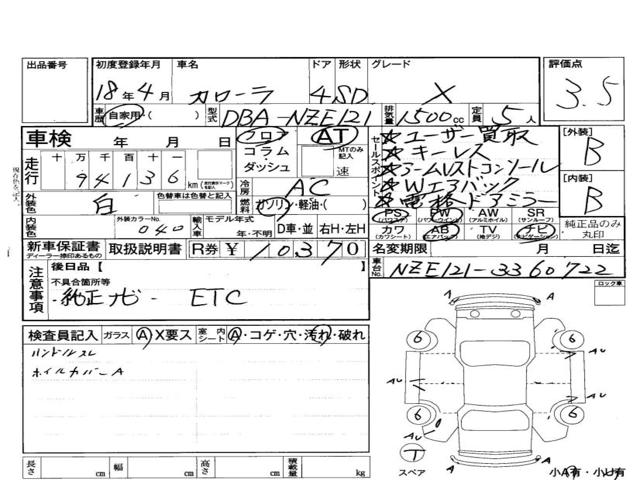 出品番号 初度登録年月 車名 ドア 形状 グレード 評価点
18年4月 カローラ 4 SD X 3.5
車歴 自家用・( ) 型式 DBA-NZE121 排気量 1500cc 定員 5人
車検 年 月 日
フロア コラム ダッシュ
AT MTのみ記入 速
セールスポイント
☆ユーザー買取
☆キーレス
☆アームレストコンソール
☆Wエアバック
☆電格ドアミラー
[外装] B
[内装] B
走行 十 万 千 百 十 一
94136 km
冷房 AC
燃料 ガソリン・軽油・( )
外装色 白 色替車は色替と記入
内装色 外装カラーNo. 040 輸入車 モデル年式 年・不明 D車・並 右H・左H
PS PW AW SR
カワ AB TV ナビ
純正品のみ丸印
新車保証書 取扱説明書 R券 ¥10370
ディーラー捺印あるもの
名変期限 月 日迄
車台No. NZE121-3360722
注意事項
後日品【 】
不具合箇所等
・純正ナビ・ ETC
ロック車
検査員記入 ガラス A X要ス 室内シート A・コゲ・穴・汚れ・破れ
ハンドルスレ
ホイルカバーA
A A
6 6
AU AU
AU AU
6 6
AU
T
スペア
A A
小A有・小U有
長さ cm 幅 cm 高さ cm 積載量 kg